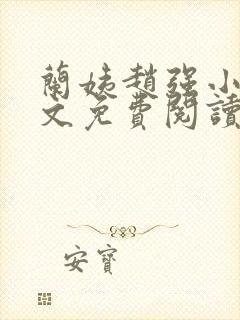 蘭姨趙強小
文免費閱讀
安寶